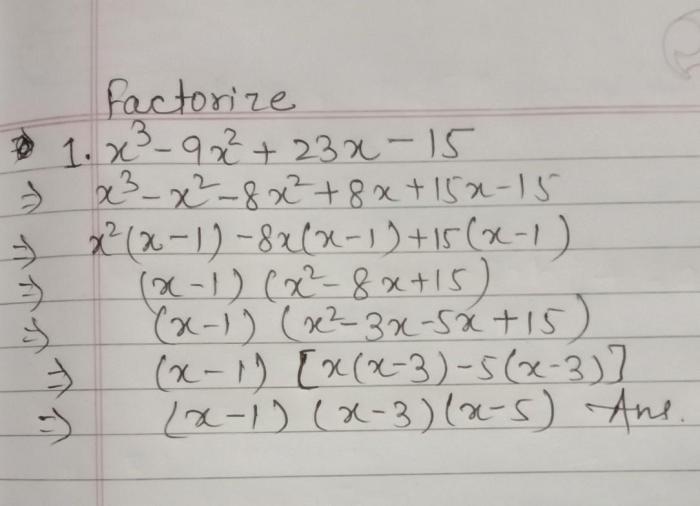 Factorize
1. x³ - 9x² + 23x - 15
⇒ x³ - x² - 8x² + 8x + 15x - 15
⇒ x²(x-1) - 8x(x-1) + 15(x-1)
⇒ (x-1) (x² - 8x + 15)
⇒ (x-1) (x² - 3x - 5x + 15)
⇒ (x-1) [x(x-3) - 5(x-3)]
⇒ (x-1) (x-3) (x-5) Ans.